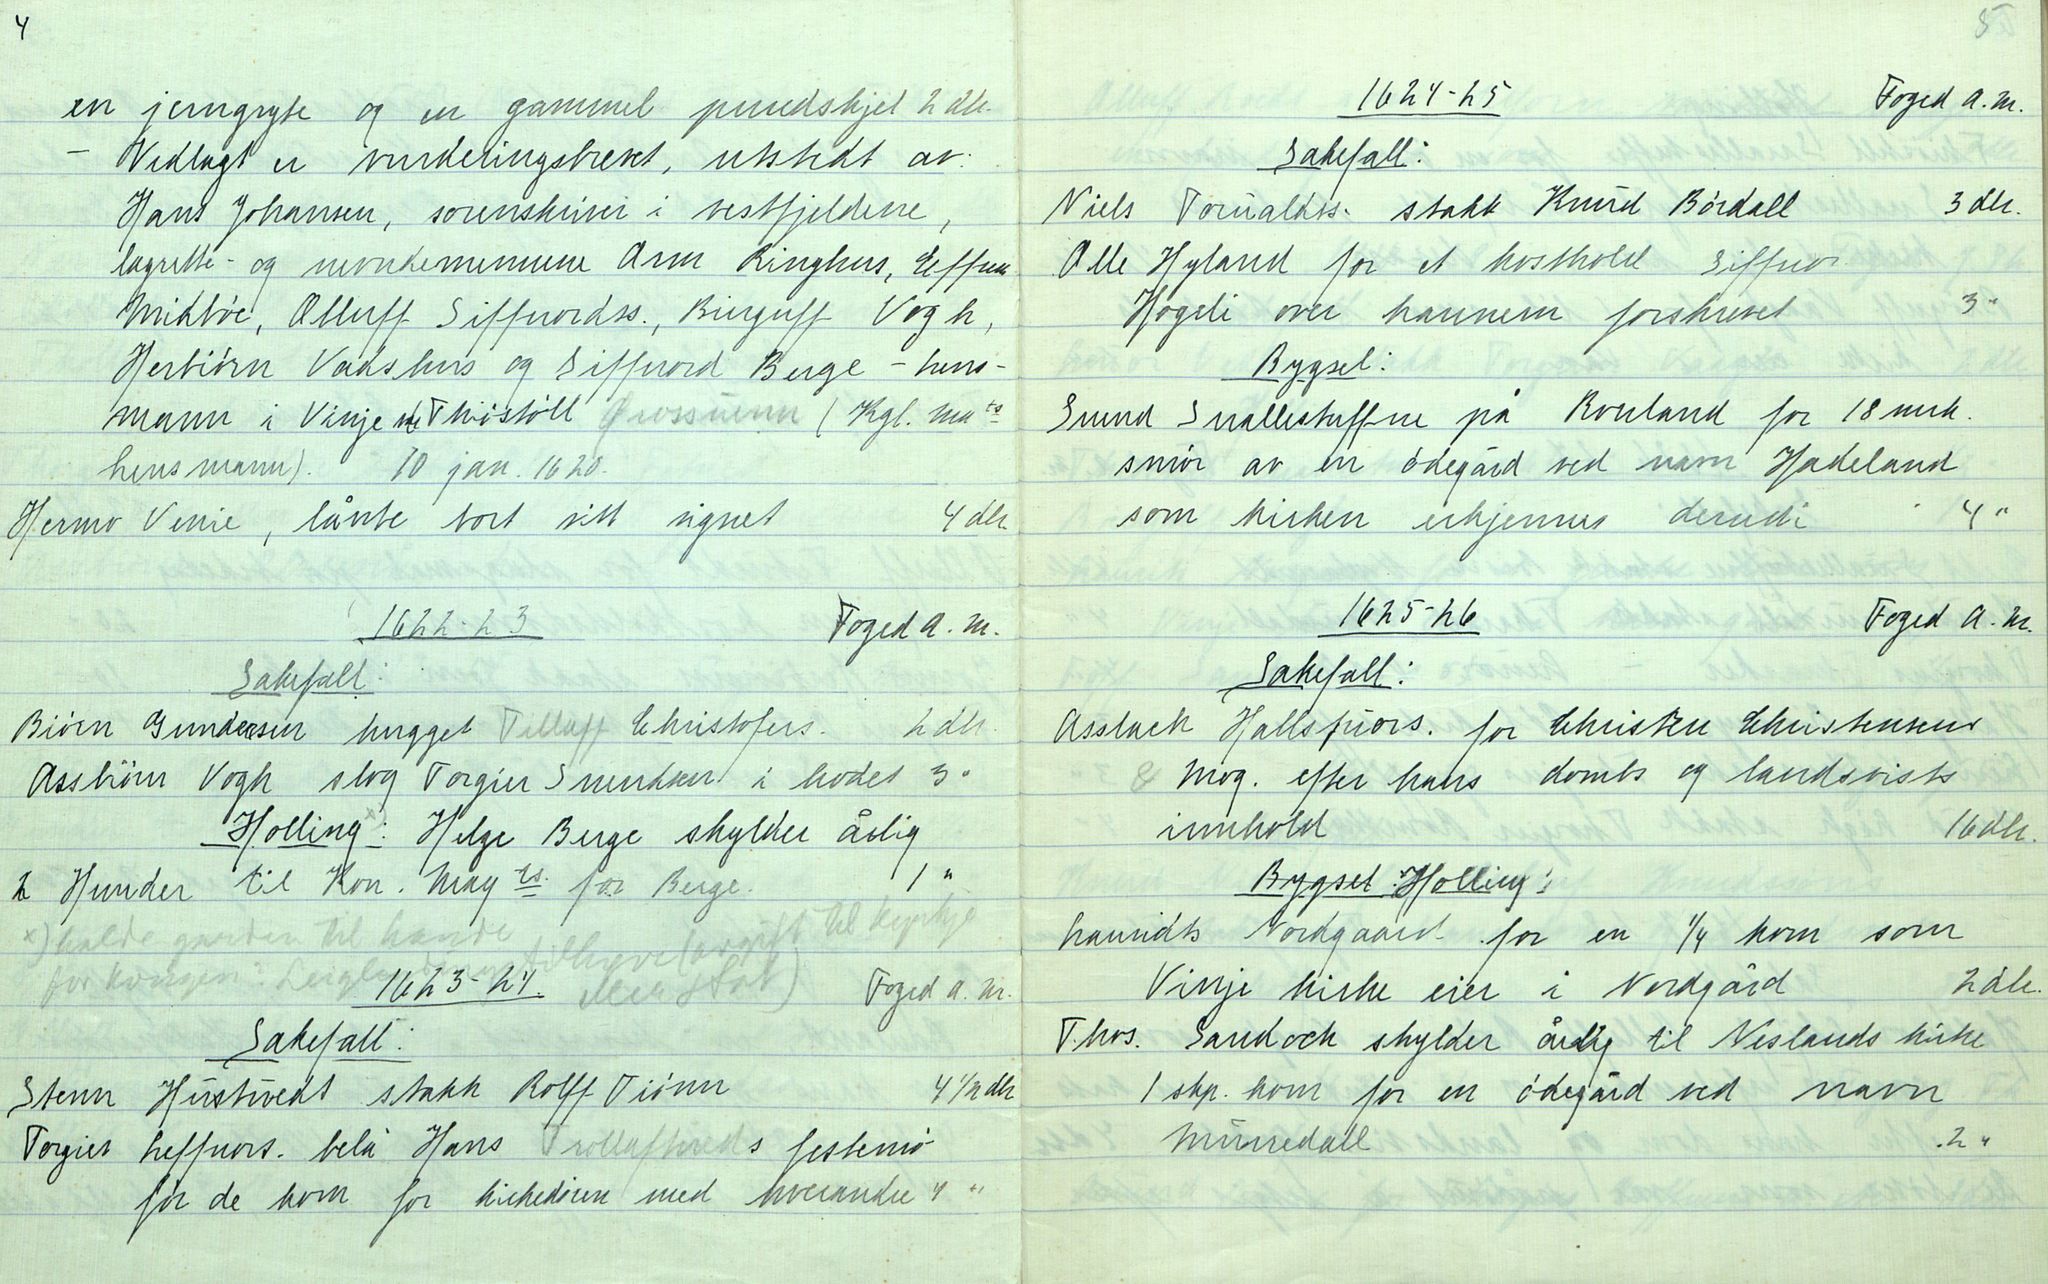 4
en jerngryte og en gammel pundskjel 2 dlr.
– Vedlagt er vurderingsbrevet, utstedt av:
Hans Johansen, sorenskriver i vestfjeldene,
lagrette- og nevndemennene Aan Ringhus, Leffuor
Midtbøe, Olluff Siffuordss., Birguff Vogh,
Herbiørn Vadshus og Siffuord Berge – lens-
mann i Vinje Thostoll Grossuenn (Kgl. Mats
lensmann). 10 jan. 1620.
Hermo Venie, lånte bort sitt signet 4 dlr
1622-23 Foged A. M.
Sakefall:
Biørn Gundersen hugget Tilluff Christofers. 2 dlr.
Assbiørn Vogh slog Torgier Suendsen i hodet 3 "
Holling x): Helge Berge skylder årlig
2 Hunder til Kon. May ts. for Berge. 1 "
x) halde garden til hande
for kongen: Leiglendingen tilhøve (avgift til kyrkje
eller stat)
1623-24. Foged A. M.
Sakefall:
Stenn Hustvedt stakk Rolff Tiønn 4 1/2 dlr
Torgier Leffuors. belå Hans Trollafhueds festemø
før de kom for kirkedøren med hverandre 4 "
5
1624-25 Foged A. M.
Sakefall:
Niels Torualdss. stakk Knud Børdall 3 dlr.
Olle Hyland for et kosthold Siffuor
Hogeli over hannem forskrevet 3 "
Bygsel:
Suend Suallestuffne på Rouland for 18 mrk.
smør av en ødegård ved navn Hadeland
som kirken erkjennes derudi 4 "
1625-26 Foged A. M.
Sakefall:
Asslack Hallsfuors. for Christen Christensens
Mog. efter hans dombs og landsvists
innhold 16 dlr.
Bygsel: Holling:
Lauridts Nordgaard for en 1/4 korn som
Vinje kirke eier i Nordgård 2 dlr.
Thos. Sandock skylder årlig til Neslands kirke
1 skp. korn for en ødegård ved navn
Munnedall 2 "